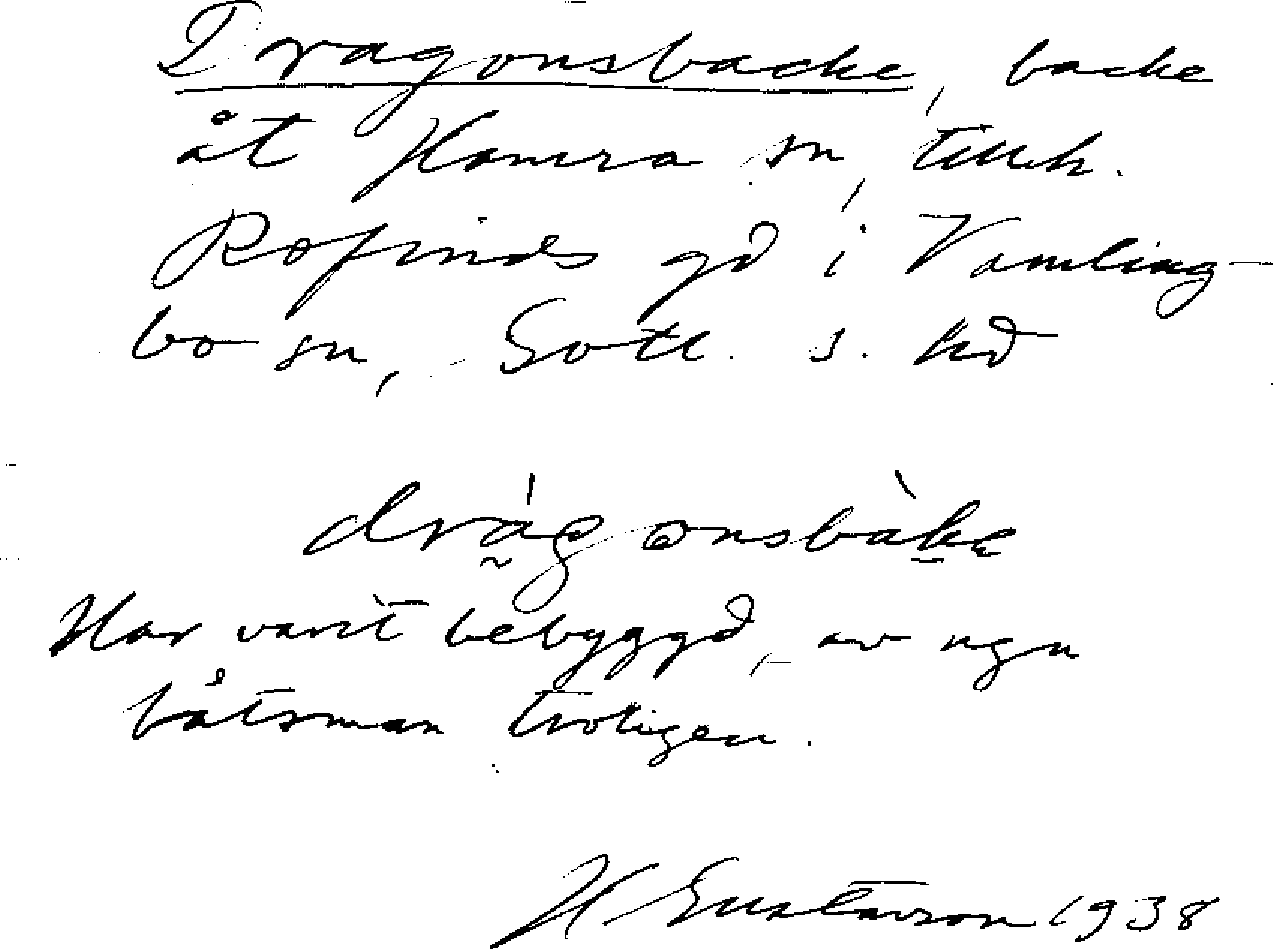 Dragonsbacke, backe
åt Hamra sn, tillh.
Rofinds gd i Vamling-
bo sn, Gotl. s. hd
drágonsbàke
Har varit bebyggd, av ngn
båtsman troligen.
H Gustavson 1938